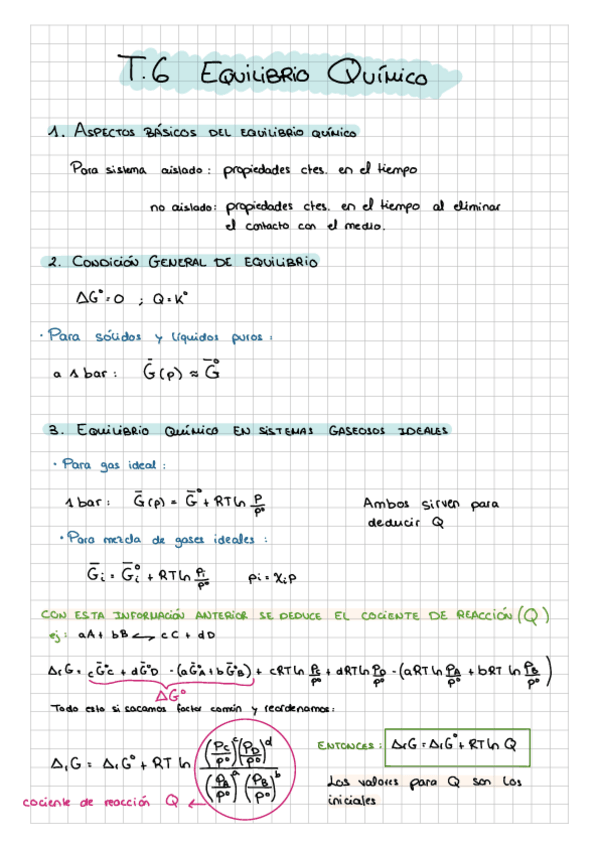 T.6 EQUILIBRIO QUÍMICO
1. ASPECTOS BÁSICOS DEL EQUILIBRIO QUÍMICO
Para sistema aislado: propiedades ctes. en el tiempo
no aislado: propiedades ctes. en el tiempo al eliminar
el contacto con el medio.
2. CONDICIÓN GENERAL DE EQUILIBRIO
ΔG° = 0 ; Q = K°
· Para sólidos y líquidos puros:
a 1 bar: Ḡ(p) ≈ Ḡ°
3. EQUILIBRIO QUÍMICO EN SISTEMAS GASEOSOS IDEALES
· Para gas ideal:
1 bar: Ḡ(p) = Ḡ° + RT ln P/P°
Ambos sirven para
deducir Q
· Para mezcla de gases ideales:
Ḡi = Ḡi° + RT ln Pi/P° pi = χi p
CON ESTA INFORMACIÓN ANTERIOR SE DEDUCE EL COCIENTE DE REACCIÓN (Q)
ej: aA + bB ⟷ cC + dD
ΔrG = cḠ°C + dḠ°D - (aḠ°A + bḠ°B) + cRT ln PC/P° + dRT ln PD/P° - (aRT ln PA/P° + bRT ln PB/P°)
ΔG°
Todo esto si sacamos factor común y reordenamos:
ΔrG = ΔrG° + RT ln (PC/P°)^c (PD/P°)^d / (PA/P°)^a (PB/P°)^b
cociente de reacción Q
ENTONCES: ΔrG = ΔrG° + RT ln Q
Los valores para Q son los
iniciales